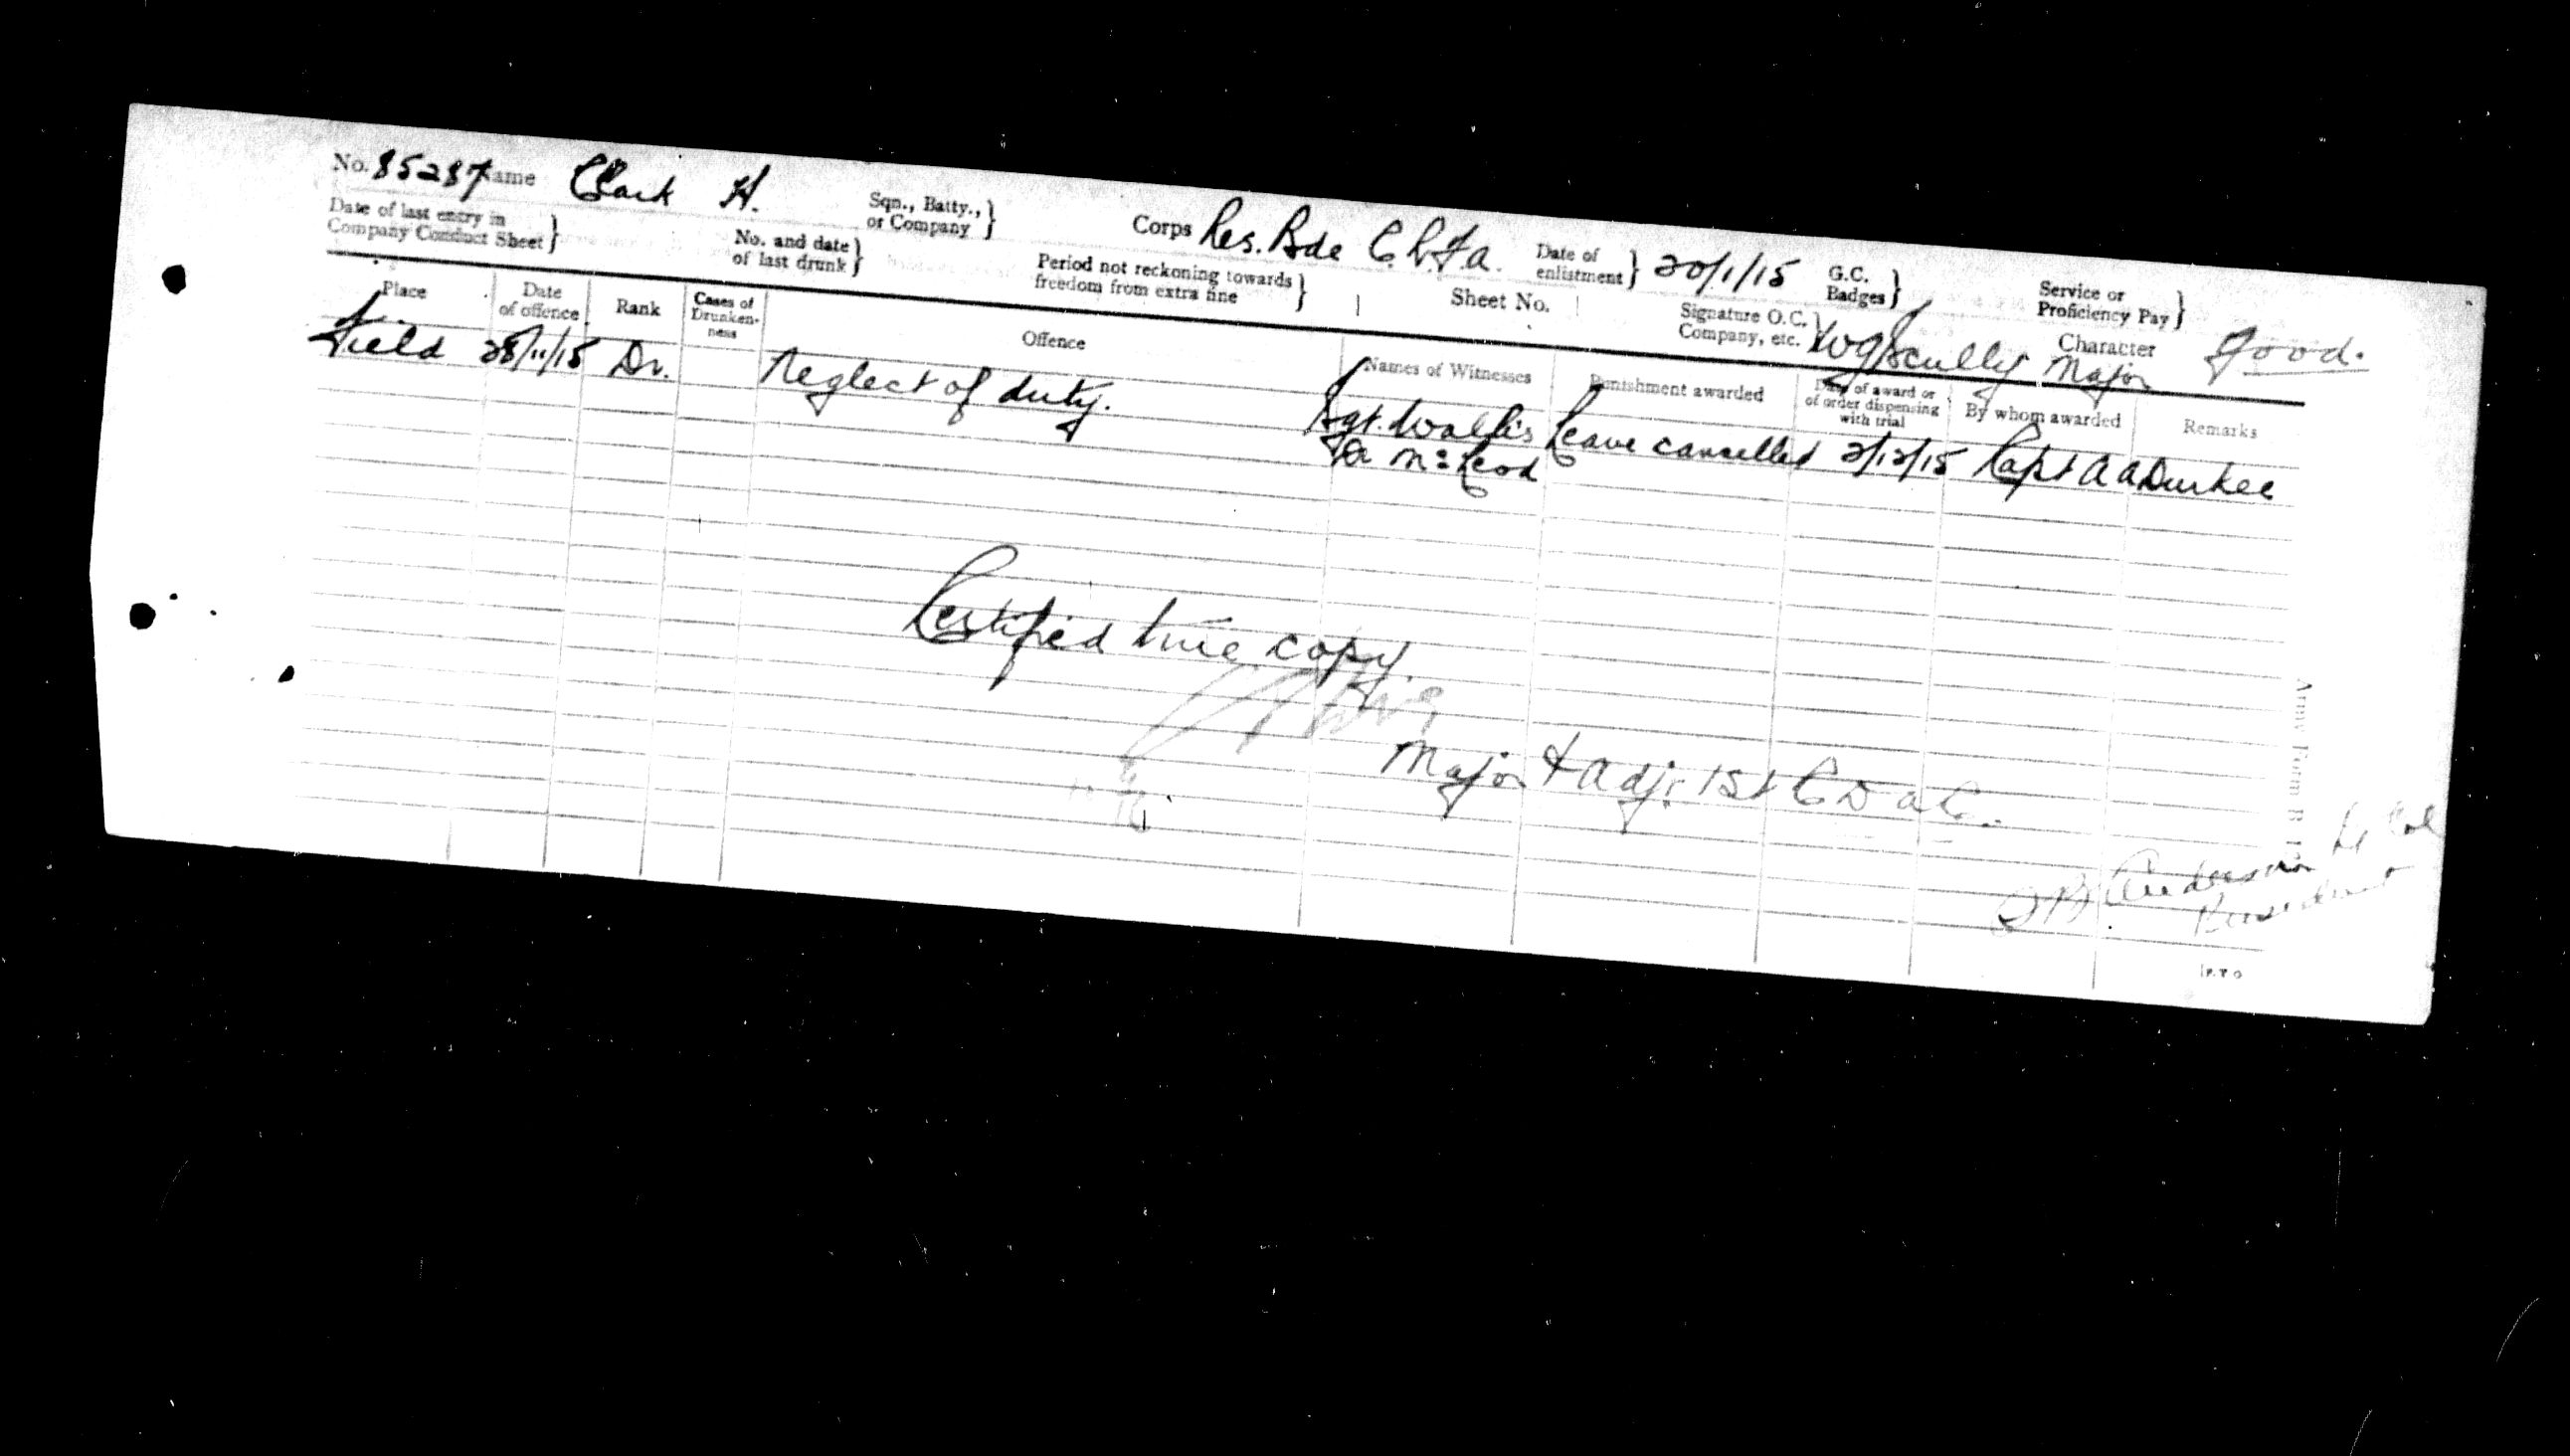 No. 85287 Name Clark H. Sqn., Batty., or Company } Corps Res. Bde C.R.F.A. Date of enlistment } 20/1/15 G.C. Badges } Service or Proficiency Pay }
Date of last entry in Company Conduct Sheet } No. and date of last drunk } Period not reckoning towards freedom from extra fine } Sheet No. Signature O.C. Company, etc. } Scully Major Character Good.
Place Date of offence Rank Cases of Drunkenness Offence Names of Witnesses Punishment awarded Date of award or of order dispensing with trial By whom awarded Remarks
Field 28/11/15 Dr. Neglect of duty. Sgt. Wallis Leave cancelled 2/12/15 Capt A A Durkee
McLeod
Certified true copy.
Major & Adjt 1st C D A C.
Army Form B
Anderson Lt Col
President
P.T.O